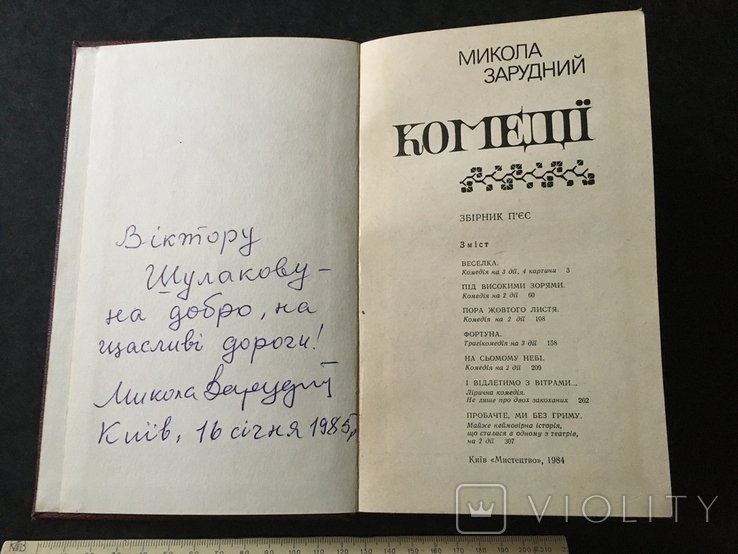 Віктору
Шулакову –
на добро, на
щасливі дороги!
Микола Зарудний
Київ, 16 січня 1985р
МИКОЛА
ЗАРУДНИЙ
КОМЕДІЇ
ЗБІРНИК П'ЄС
Зміст
ВЕСЕЛКА.
Комедія на 3 дії, 4 картини 3
ПІД ВИСОКИМИ ЗОРЯМИ.
Комедія на 2 дії 60
ПОРА ЖОВТОГО ЛИСТЯ.
Комедія на 2 дії 108
ФОРТУНА.
Трагікомедія на 3 дії 158
НА СЬОМОМУ НЕБІ.
Комедія на 2 дії 209
І ВІДЛЕТИМО З ВІТРАМИ...
Лірична комедія.
Не лише про двох закоханих 262
ПРОБАЧТЕ, МИ БЕЗ ГРИМУ.
Майже неймовірна історія,
що сталася в одному з театрів,
на 2 дії 307
Київ «Мистецтво», 1984
VIOLITY